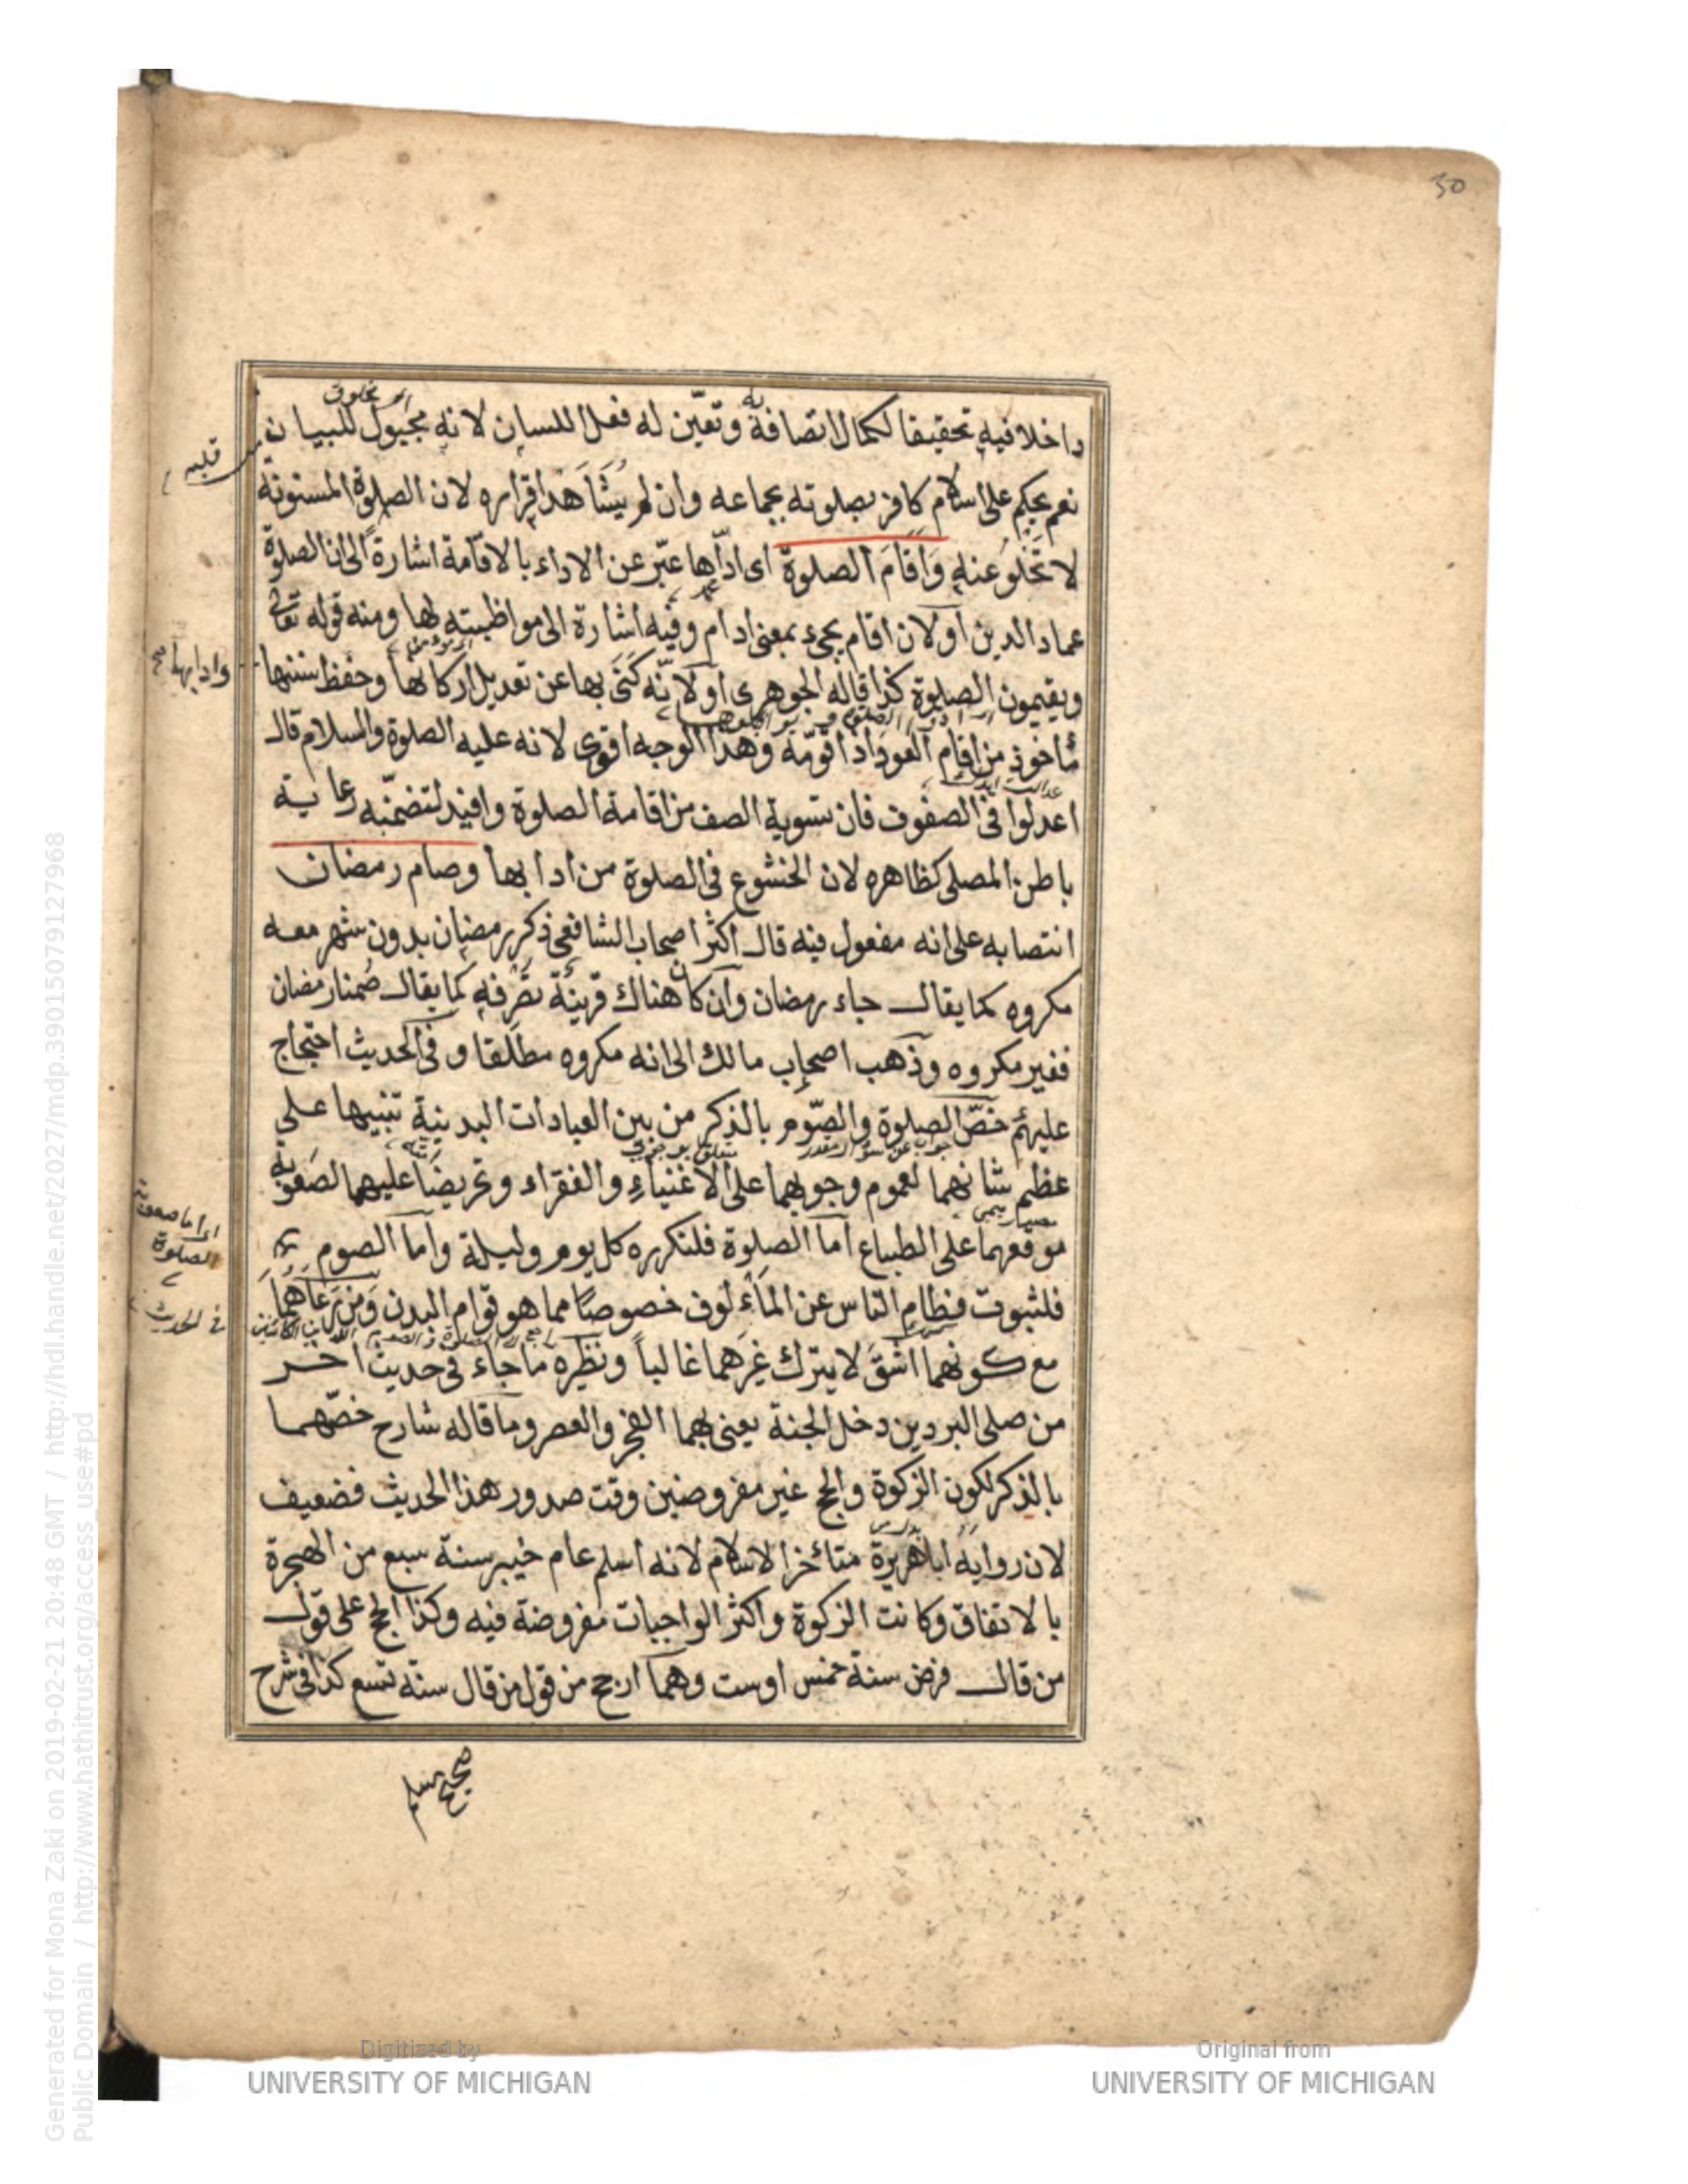 30
داخلا فيه تحقيقا لكمال اتصافه به وتعين له فعل اللسان لانه مجبول للبيان
قلبه
نعم يحكم على اسلام كافر بصلوته بجماعه وان لم يشاهد اقراره لان الصلوة المسنونة
لا تخلو عنه وَاَقَامَ الصلوة اى ادّاها عبّر عن الاداء بالاقامة اشارة الى ان الصلوة
عماد الدين او لان اقام يجىء بمعنى ادام وفيه اشارة الى مواظبته لها ومنه قوله تعالى
ويقيمون الصلوة كذا قاله الجوهرى او لانّه كَنَى بها عن تعديل اركانها وحفظ سننها
وادابها صح
مأخوذ من اقام العود اذا قومّه وهذا الوجه اقوى لانه عليه الصلوة والسلام قال
اعدلوا فى الصفوف فان تسوية الصف من اقامة الصلوة وافيد لتضمّنه رعاية
باطن المصلى كظاهره لان الخشوع فى الصلوة من ادابها وصام رمضان
انتصابه على انه مفعول فيه قال اكثر اصحاب الشافعى ذكر رمضان بدون شهر معه
مكروه كما يقال جاء رمضان وان كان هناك قرينة تصرفه كما يقال صُمنا رمضان
فغير مكروه وذهب اصحاب مالك الى انه مكروه مطلقا و فى الحديث احتجاج
عليهم خصّ الصلوة والصّوم بالذكر من بين العبادات البدنية تنبيها على
عظم شانهما لعموم وجوبهما على الاغنياء والفقراء وتحريضا عليهما لصعوبة
موقعهما على الطباع اما الصلوة فلتكرره كل يوم وليلة واما الصوم
اى اما صعوبة
الصلوة
فلثبوت فطام الناس عن المأٔلوف خصوصًا مما هو قوام البدن ومن يرعاهما
فى الحديث
مع كونهما اشقّ لا يترك غيرهما غالباً ونظيره ما جاء فى حديث اخر
من صلى البردين دخل الجنة يعنى بهما الفجر والعصر وما قاله شارح خصّهما
بالذكر لكون الزكوة والحج غير مفروضين وقت صدور هذا الحديث فضعيف
لان روايه اباهريرة متأخر الاسلام لانه اسلم عام خيبر سنة سبع من الهجرة
بالاتفاق وكانت الزكوة واكثر الواجبات مفروضة فيه وكذا الحج على قول
من قال فرض سنة خمس اوست وهما ارجح من قول من قال سنة تسع كذا فى شرح
صحيح مسلم
Generated for Mona Zaki on 2019-02-21 20:48 GMT / http://hdl.handle.net/2027/mdp.39015079127968
Public Domain / http://www.hathitrust.org/access_use#pd
Digitized by
UNIVERSITY OF MICHIGAN
Original from
UNIVERSITY OF MICHIGAN